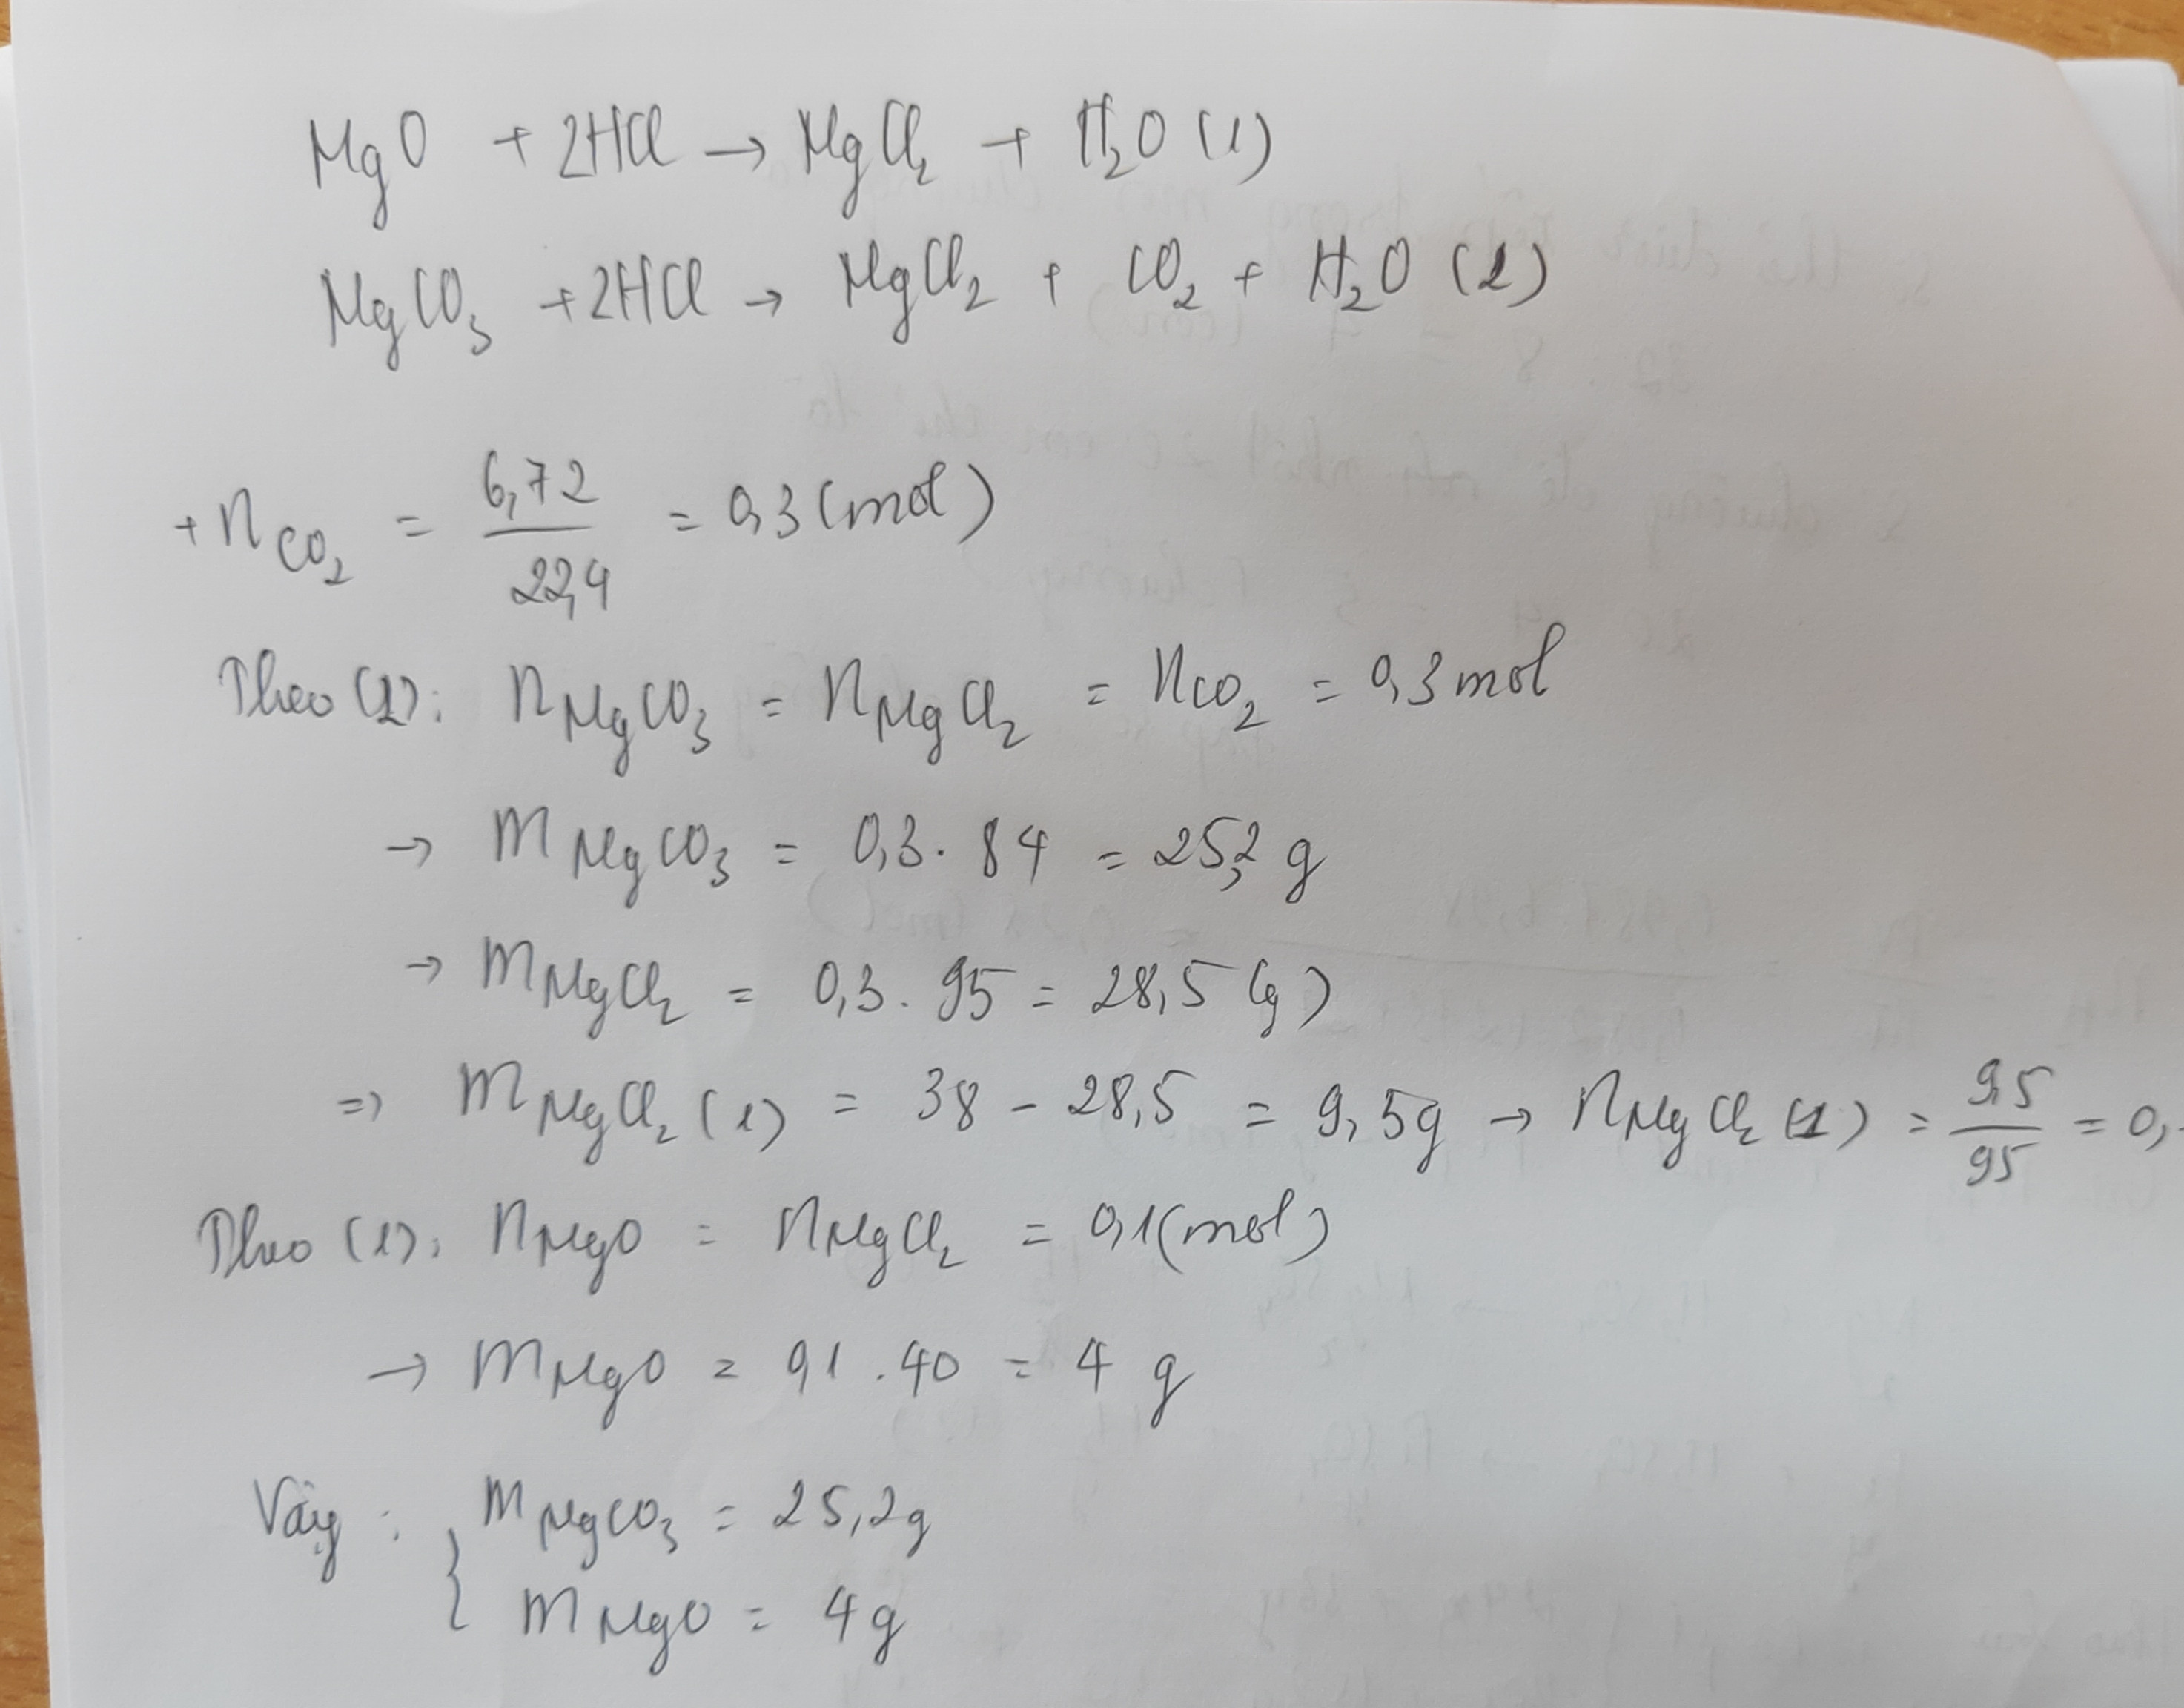 MgO + 2HCl → MgCl₂ + H₂O (1)
MgCO₃ + 2HCl → MgCl₂ + CO₂ + H₂O (2)
+ n CO₂ = 6,72 / 22,4 = 0,3 (mol)
Theo (2): n MgCO₃ = n MgCl₂ = n CO₂ = 0,3 mol
→ m MgCO₃ = 0,3 . 84 = 25,2 g
→ m MgCl₂ = 0,3 . 95 = 28,5 (g)
=> m MgCl₂ (1) = 38 - 28,5 = 9,5g → n MgCl₂ (1) = 9,5 / 95 = 0,
Theo (1): n MgO = n MgCl₂ = 0,1 (mol)
→ m MgO = 0,1 . 40 = 4 g
Vậy : { m MgCO₃ = 25,2g
m MgO = 4g